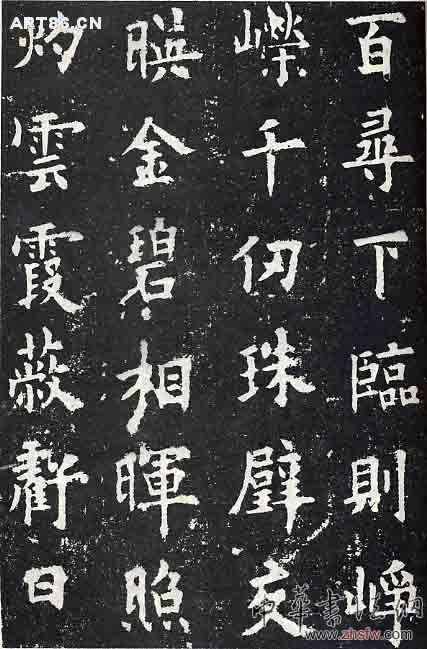 百尋下臨則崢
嶸千仞珠璧夜
暎金碧相暉照
灼雲霞蔽虧日
ART86.CN
中华书法网
www.zhsfw.com